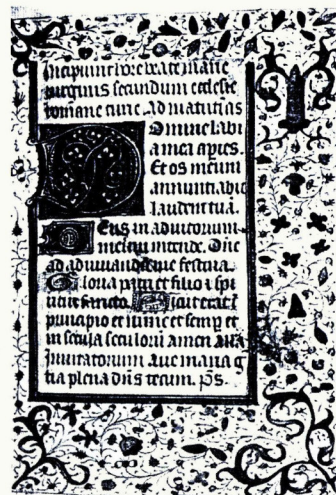 Incipiunt hore beate marie
virginis secundum ecclesie
romane curie. Ad matutias
Domine labi
a mea apies.
Et os meum
annuntiabit
laudem tuā.
Deus in adiutorium
meum intende. Dñe
ad adiuuandū me festina.
Gloria patri et filio & spi
ritui sancto. Sicut erat ī
principio et nunc et semp et
in secula seculorū amen
Inuitatorium. Aue maria g̃
tia plena dñs tecum. p̄s.